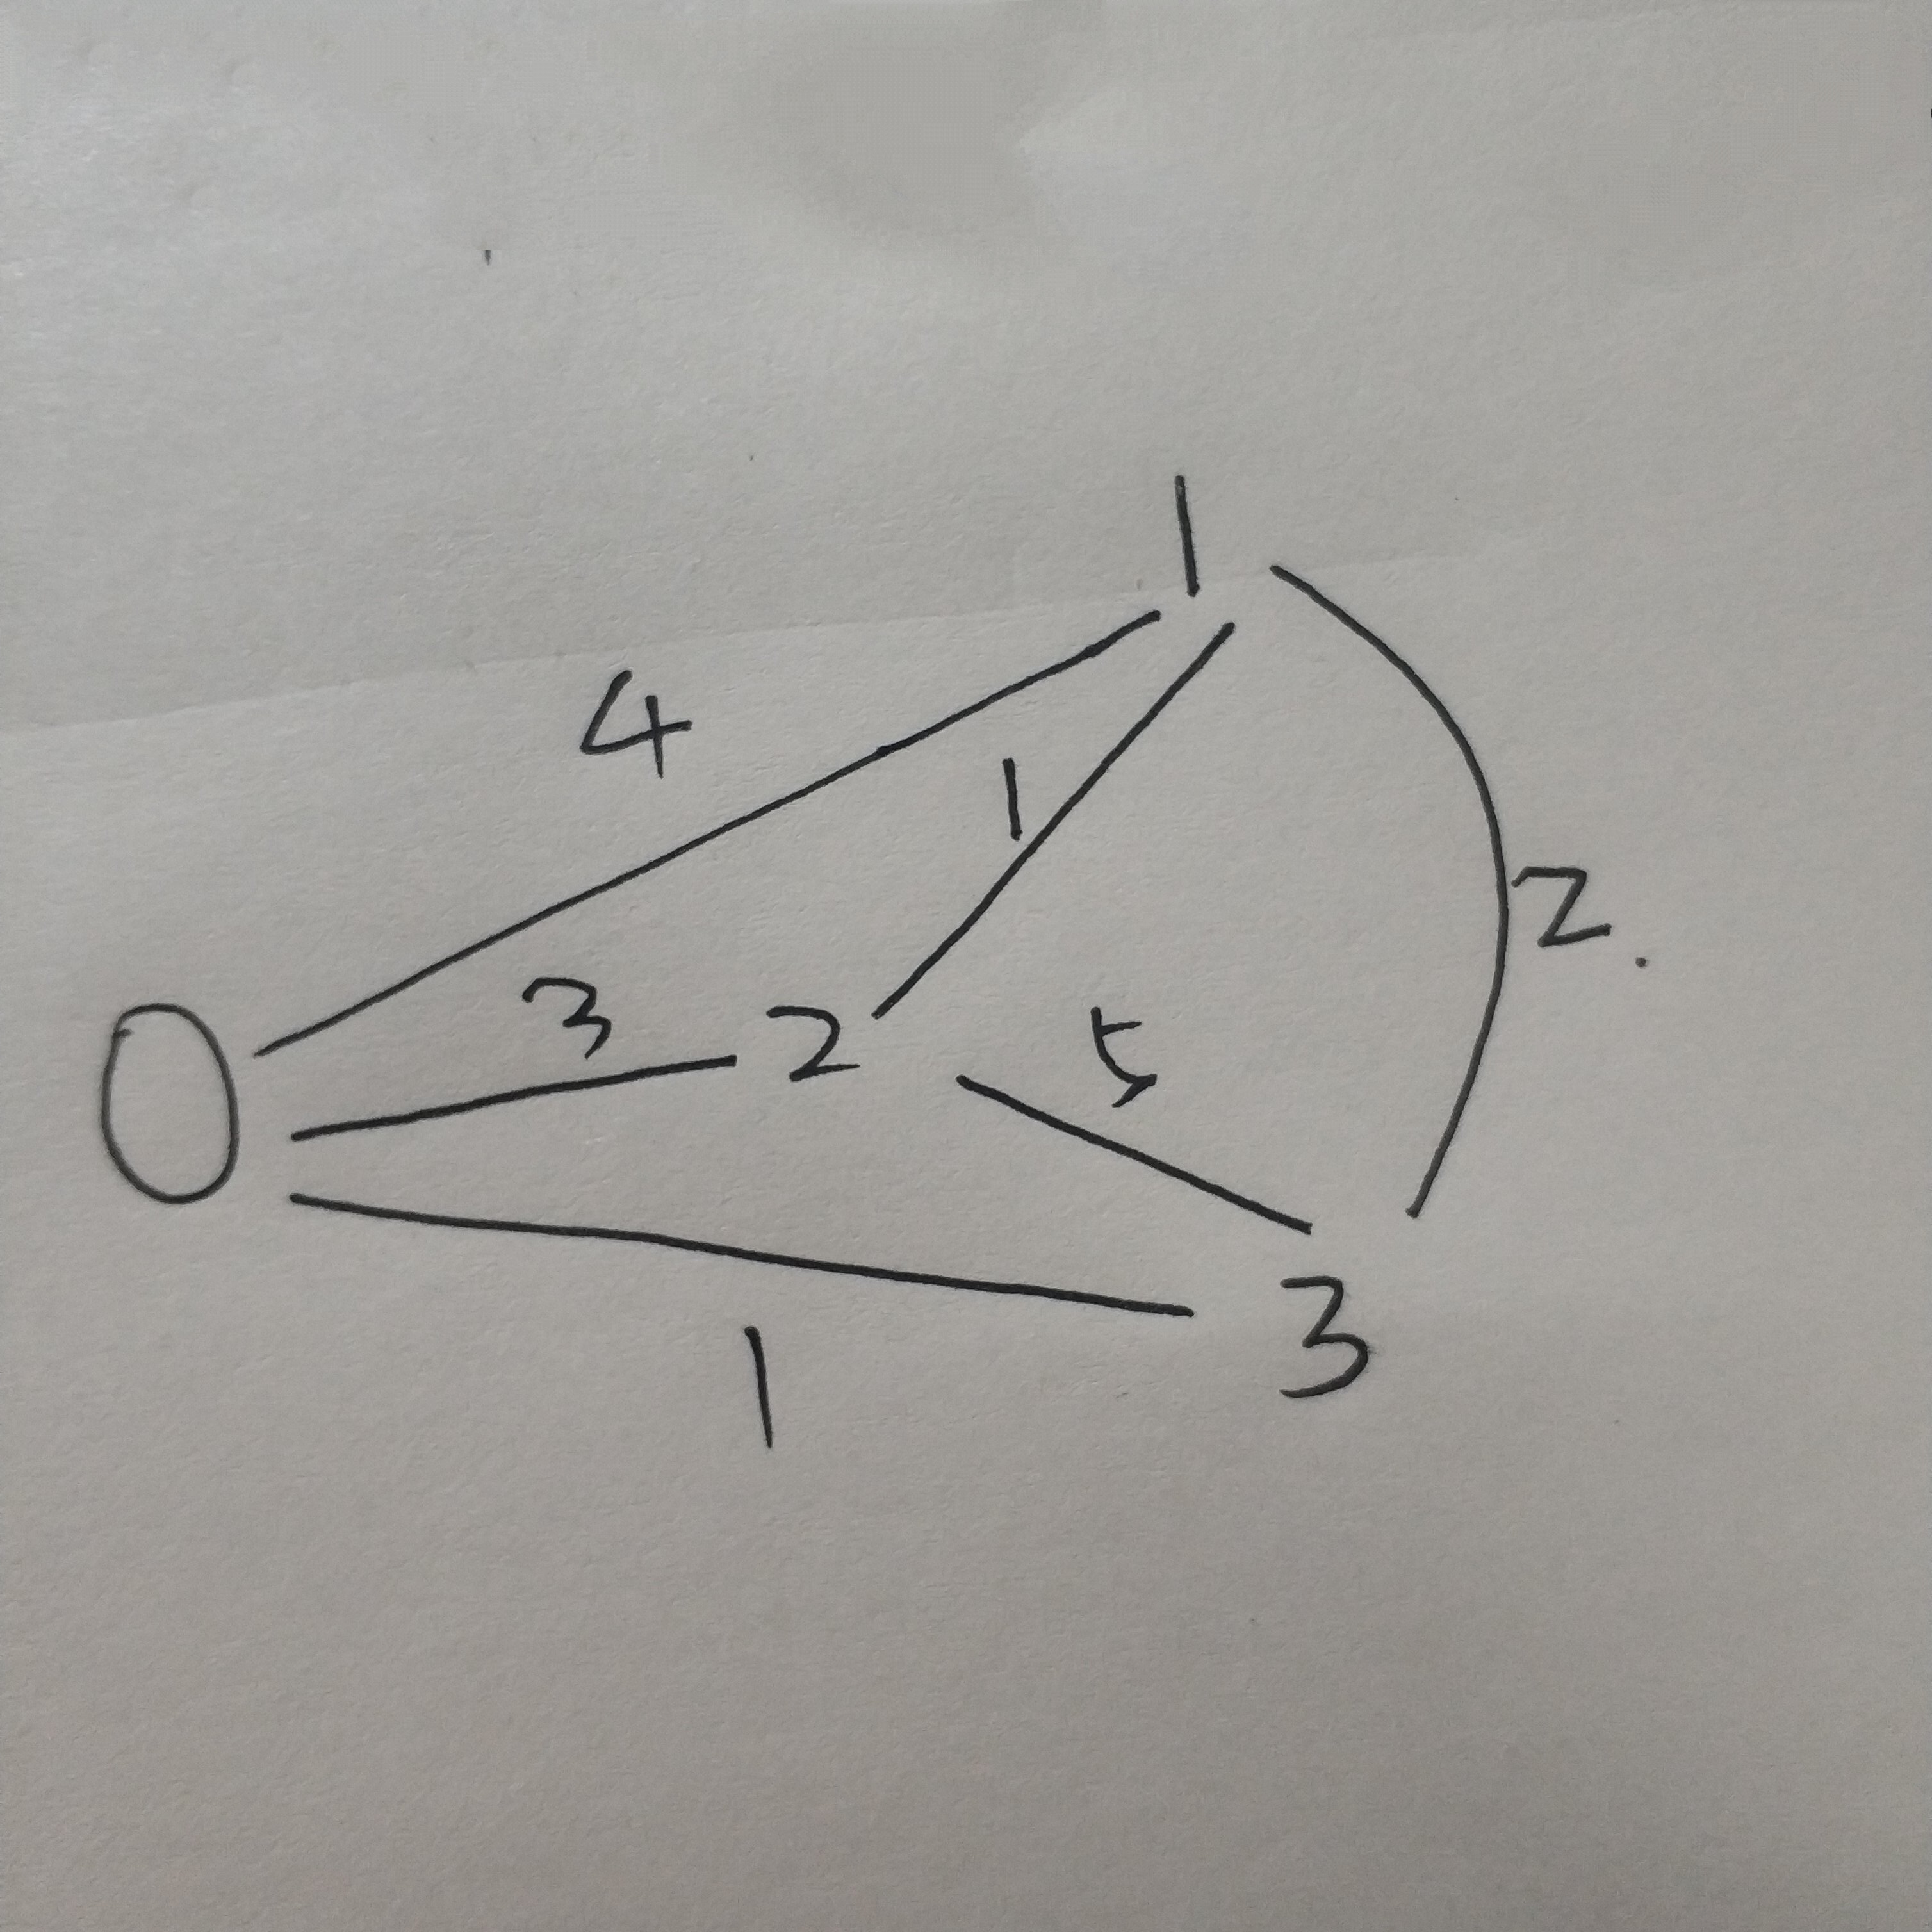 1
4
1
2.
0
3
2
5
3
1